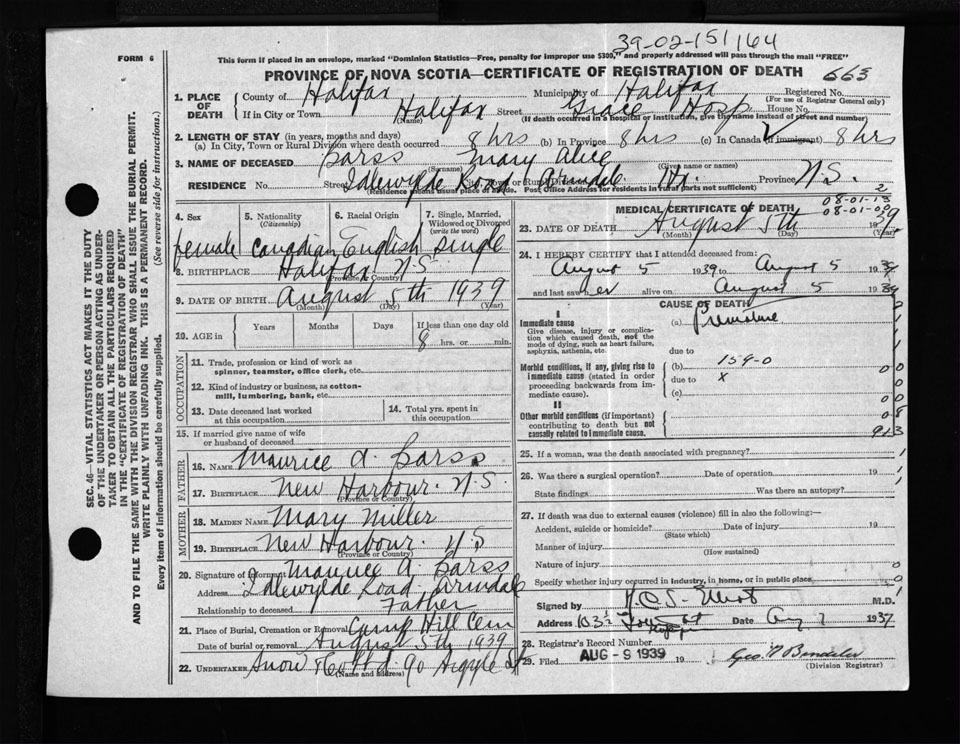 39-02-151164
FORM 6
This form if placed in an envelope, marked "Dominion Statistics—Free, penalty for improper use $300," and properly addressed will pass through the mail "FREE"
PROVINCE OF NOVA SCOTIA—CERTIFICATE OF REGISTRATION OF DEATH 663
1. PLACE OF DEATH
County of Halifax Municipality of Halifax Registered No.
(For use of Registrar General only)
If in City or Town Halifax Street Grace Hosp House No.
(Name) (If death occurred in a hospital or institution, give the name instead of street and number)
2. LENGTH OF STAY (in years, months and days)
(a) In City, Town or Rural Division where death occurred 8 hrs (b) In Province 8 hrs (c) In Canada (if immigrant) 8 hrs
3. NAME OF DECEASED Barss Mary Alice
(Surname) (Given name or names)
RESIDENCE No. Street Idlewylde Road City, Town or Rural Division Armdale Hx. Province N.S.
(Residence means usual place of abode. Post Office Address for residents in rural parts not sufficient)
2
08-01-13
08-01-00
4. Sex
female
5. Nationality
(Citizenship)
Canadian
6. Racial Origin
English
7. Single, Married, Widowed or Divorced
(write the word)
single
8. BIRTHPLACE Halifax N.S.
(Province or Country)
9. DATE OF BIRTH August 5th 1939
(Month) (Day) (Year)
10. AGE in
Years Months Days If less than one day old
8 hrs. or min.
OCCUPATION
11. Trade, profession or kind of work as
spinner, teamster, office clerk, etc.
12. Kind of industry or business, as cotton-
mill, lumbering, bank, etc.
13. Date deceased last worked
at this occupation
14. Total yrs. spent in
this occupation
15. If married give name of wife
or husband of deceased
FATHER
16. NAME Maurice A. Barss
17. BIRTHPLACE New Harbour. N.S.
(Province or Country)
MOTHER
18. MAIDEN NAME Mary Miller
19. BIRTHPLACE New Harbour. N.S
(Province or Country)
20. Signature of informant Maurice A. Barss
Idlewylde Road Armdale
Relationship to deceased Father
21. Place of Burial, Cremation or Removal Camp Hill Cem
Date of burial or removal August 5th 1939
22. UNDERTAKER Snow & Co Ltd. 90 Argyle St
(Name and address)
MEDICAL CERTIFICATE OF DEATH
23. DATE OF DEATH August 5th 1939
(Month) (Day) (Year)
24. I HEREBY CERTIFY that I attended deceased from:
August 5 1939 to August 5 1939
and last saw her alive on August 5 1939
CAUSE OF DEATH
I
Immediate cause
Give disease, injury or complica-
tion which caused death, not the
mode of dying, such as heart failure,
asphyxia, asthenia, etc.
(a) Premature
due to
Morbid conditions, if any, giving rise to
immediate cause (stated in order
proceeding backwards from im-
mediate cause).
(b) 159-0
due to x
(c)
II
Other morbid conditions (if important)
contributing to death but not
causally related to immediate cause.
00
00
08
913
25. If a woman, was the death associated with pregnancy?
26. Was there a surgical operation? Date of operation 19
State findings Was there an autopsy?
27. If death was due to external causes (violence) fill in also the following:—
Accident, suicide or homicide? Date of injury 19
(State which)
Manner of injury
(How sustained)
Nature of injury
Specify whether injury occurred in industry, in home, or in public place
Signed by Elliot M.D.
Address Date Aug 7 1939
28. Registrar's Record Number
29. Filed AUG - 9 1939 19 Geo
(Division Registrar)
SEC. 46—VITAL STATISTICS ACT MAKES IT THE DUTY
OF THE UNDERTAKER OR PERSON ACTING AS UNDER-
TAKER TO OBTAIN ALL THE PARTICULARS REQUIRED
IN THE "CERTIFICATE OF REGISTRATION OF DEATH"
AND TO FILE THE SAME WITH THE DIVISION REGISTRAR WHO SHALL ISSUE THE BURIAL PERMIT.
WRITE PLAINLY WITH UNFADING INK. THIS IS A PERMANENT RECORD.
Every item of information should be carefully supplied. (See reverse side for instructions.)